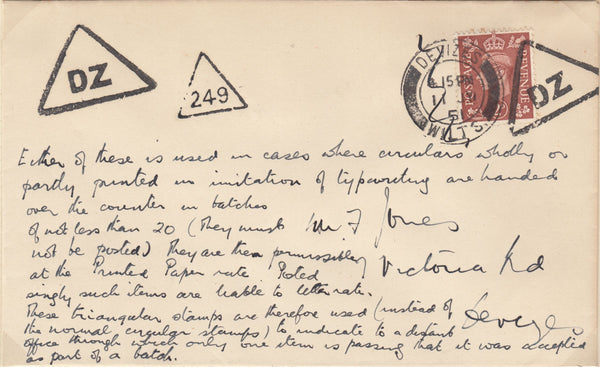 DZ
249
DEVIZES
6 15 PM
11
51
WILTS.
POSTAGE
REVENUE
DZ
Either of these is used in cases where circulars wholly or
partly printed in imitation of typewriting are handed
over the counter in batches
of not less than 20 (They must
not be posted) They are then permissibly
at the Printed Paper rate. Posted
singly such items are liable to letter rate.
These triangular stamps are therefore used (instead of
the normal circular stamps) to indicate to a distant
office through which only one item is passing that it was accepted
as part of a batch.
Mr F Jones
Victoria Rd
Devizes